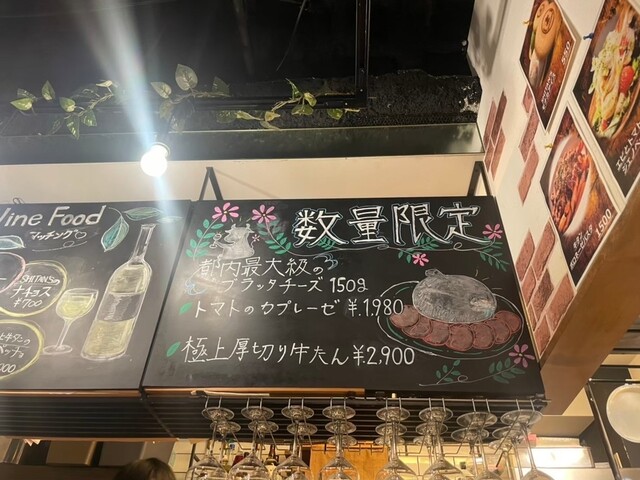 Wine Food
マッチング
ナチョス
¥700
数量限定
都内最大級の
ブラッタチーズ 150g
トマトのカプレーゼ ¥.1,980
極上厚切り牛たん ¥2,900